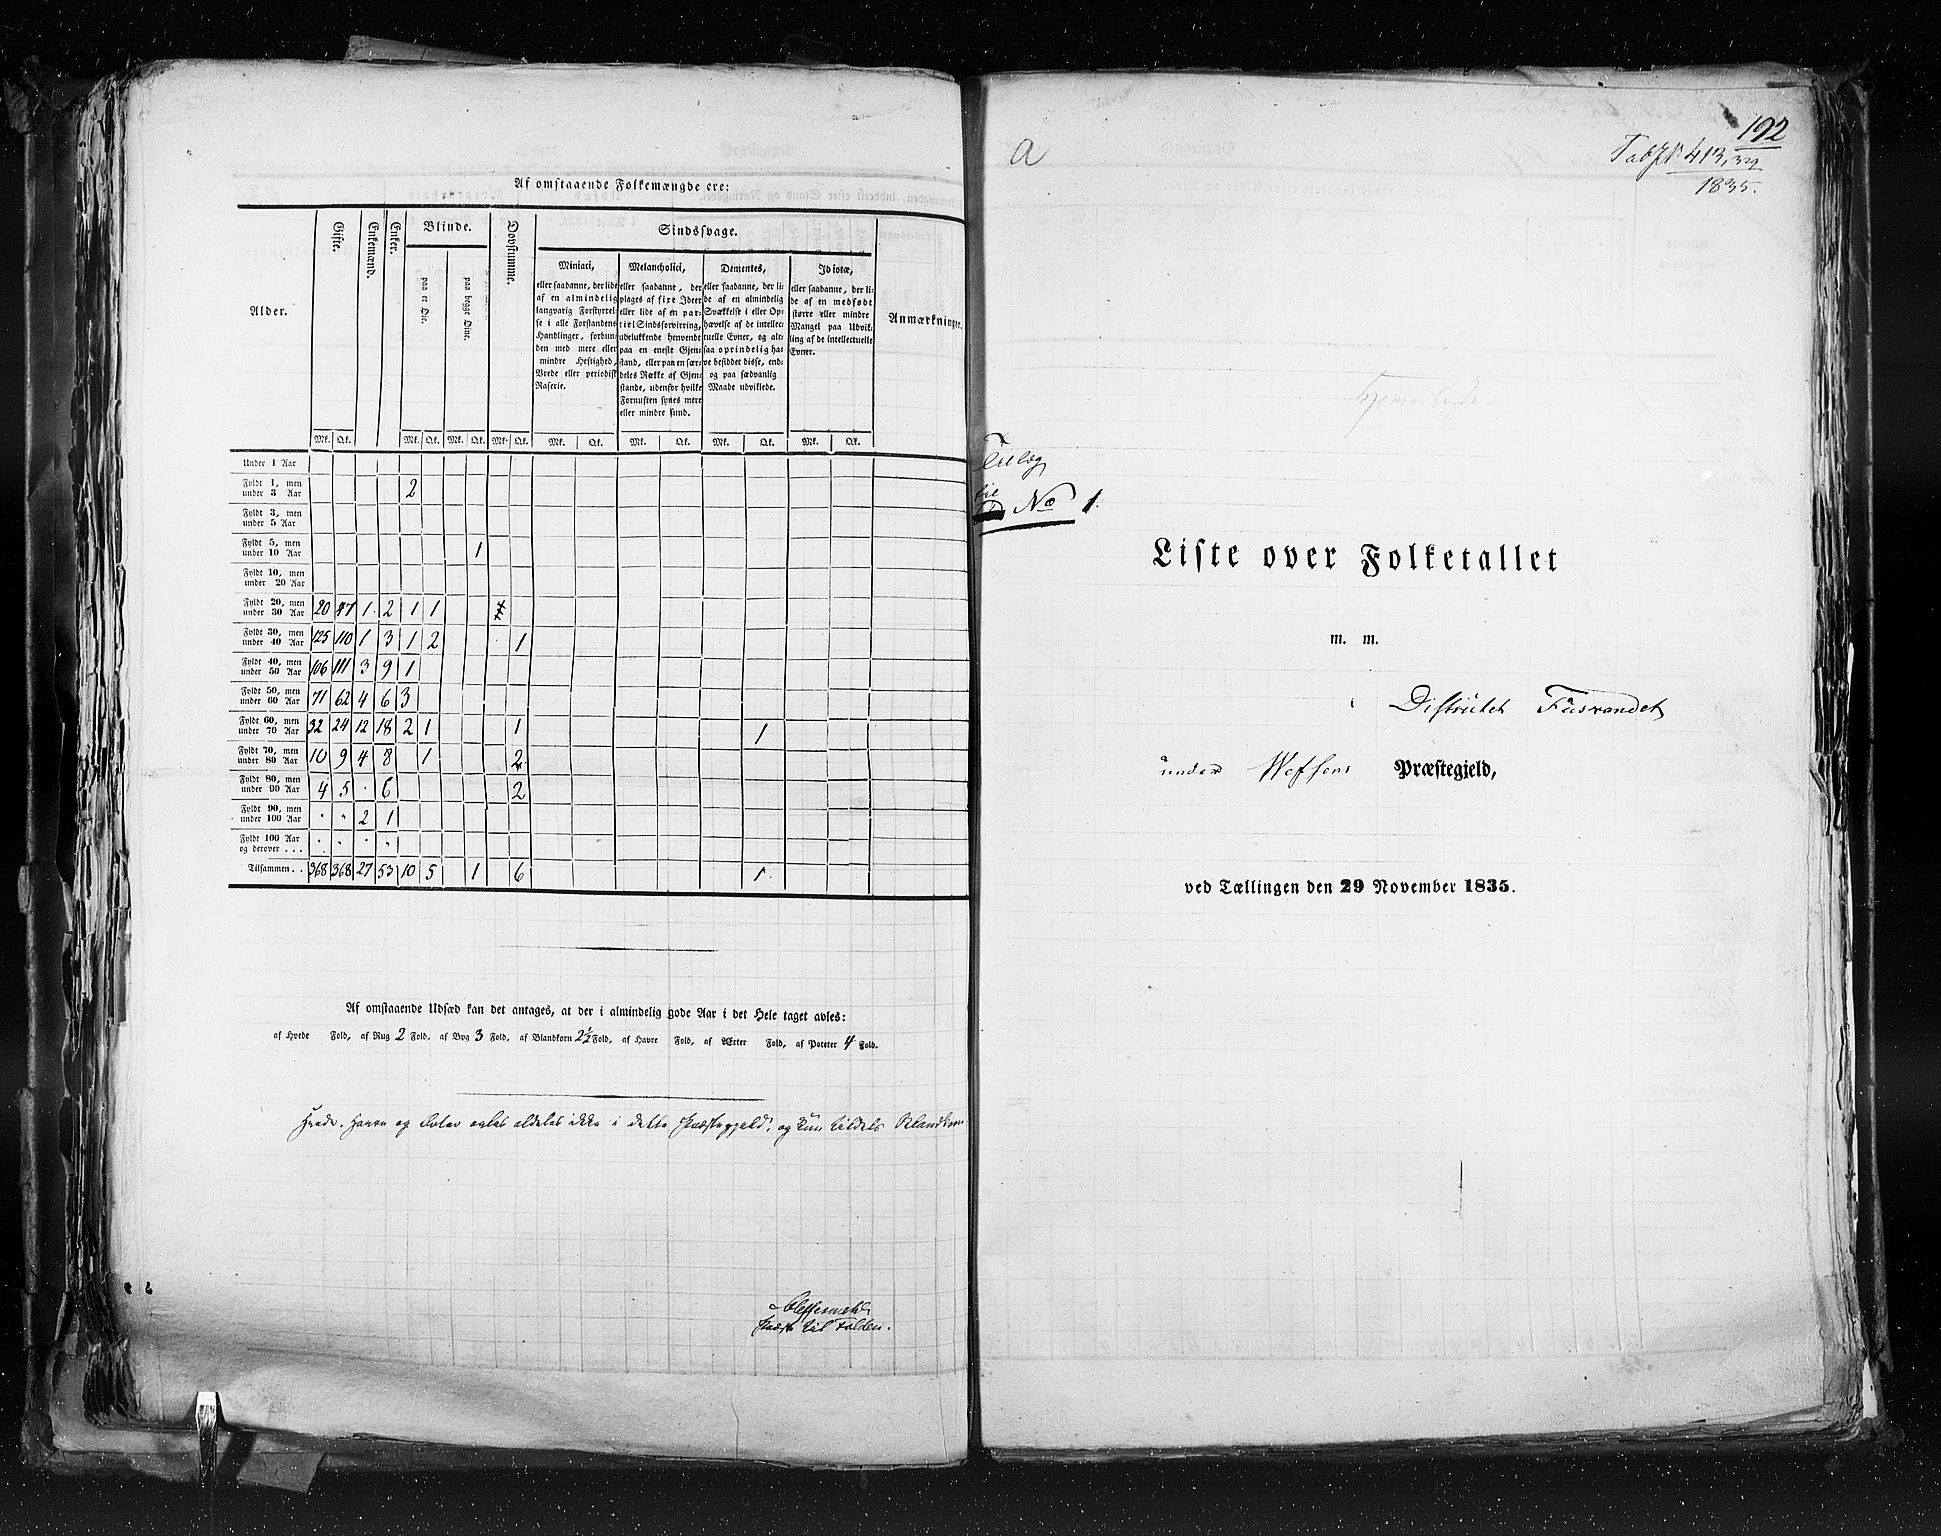 Af omstaaende Folkemængde ere:
Alder. Gifte. Enkemænd. Enker. Blinde. Dovstumme. Sindssvage. Anmærkninger.
paa et Øie. paa begge Øine.
Miniaci,
eller saadanne, der lide
af en almindelig
langvarig Forstyrrel-
se i alle Forstandens
Handlinger, forbun-
den med mere eller
mindre Heftighed,
Vrede eller periodisk
Raserie.
Melancholici,
eller saadanne, der
plages af fixe Ideer
eller lide af en par-
tiel Sindsforvirring,
udelukkende henvendt
paa en eneste Gjen-
stand, eller paa en sær-
deles Række af Gjen-
stande, udenfor hvilke
Fornuften synes mere
eller mindre sund.
Dementes,
eller saadanne, der li-
de af en almindelig
Svækkelse i eller Op-
hævelse af de intellec-
tuelle Evner, og alt-
saa oprindelig ha-
ve besiddet disse, end-
og paa sædvanlig
Maade udviklede.
Idiotæ,
eller saadanne, der li-
de af en medfødt
større eller mindre
Mangel paa Udvik-
ling af de intellectuelle
Evner.
Mk. Qk. Mk. Qk. Mk. Qk. Mk. Qk. Mk. Qk. Mk. Qk. Mk. Qk. Mk. Qk.
Under 1 Aar
Fyldt 1, men
under 3 Aar 2
Fyldt 3, men
under 5 Aar
Fyldt 5, men
under 10 Aar 1
Fyldt 10, men
under 20 Aar
Fyldt 20, men
under 30 Aar 20 47 1 2 1 1
Fyldt 30, men
under 40 Aar 125 110 1 3 1 2 1
Fyldt 40, men
under 50 Aar 106 111 3 9 1
Fyldt 50, men
under 60 Aar 71 62 4 6 3
Fyldt 60, men
under 70 Aar 32 24 12 18 2 1 1 1
Fyldt 70, men
under 80 Aar 10 9 4 8 1 2
Fyldt 80, men
under 90 Aar 4 5 . 6 2
Fyldt 90, men
under 100 Aar " " 2 1
Fyldt 100 Aar
og derover . . . " " " "
Tilsammen . . 368 368 27 53 10 5 1 6 1
Af omstaaende Udsæd kan det antages, at der i almindelig gode Aar i det Hele taget avles:
af Hvede Fold, af Rug 2 Fold, af Byg 3 Fold, af Blandkorn 2½ Fold, af Havre Fold, af Ærter Fold, af Poteter 4 Fold.
Hvede, Havre og Erter avles aldeles ikke i dette Præstegjeld, og kun tildels Blandkorn
Præst til
192
1835.
a
Tillæg
til
No 1.
Liste over Folketallet
m. m.
i Districtet Fusvandet
under Wefsens Præstegjeld,
ved Tællingen den 29 November 1835.